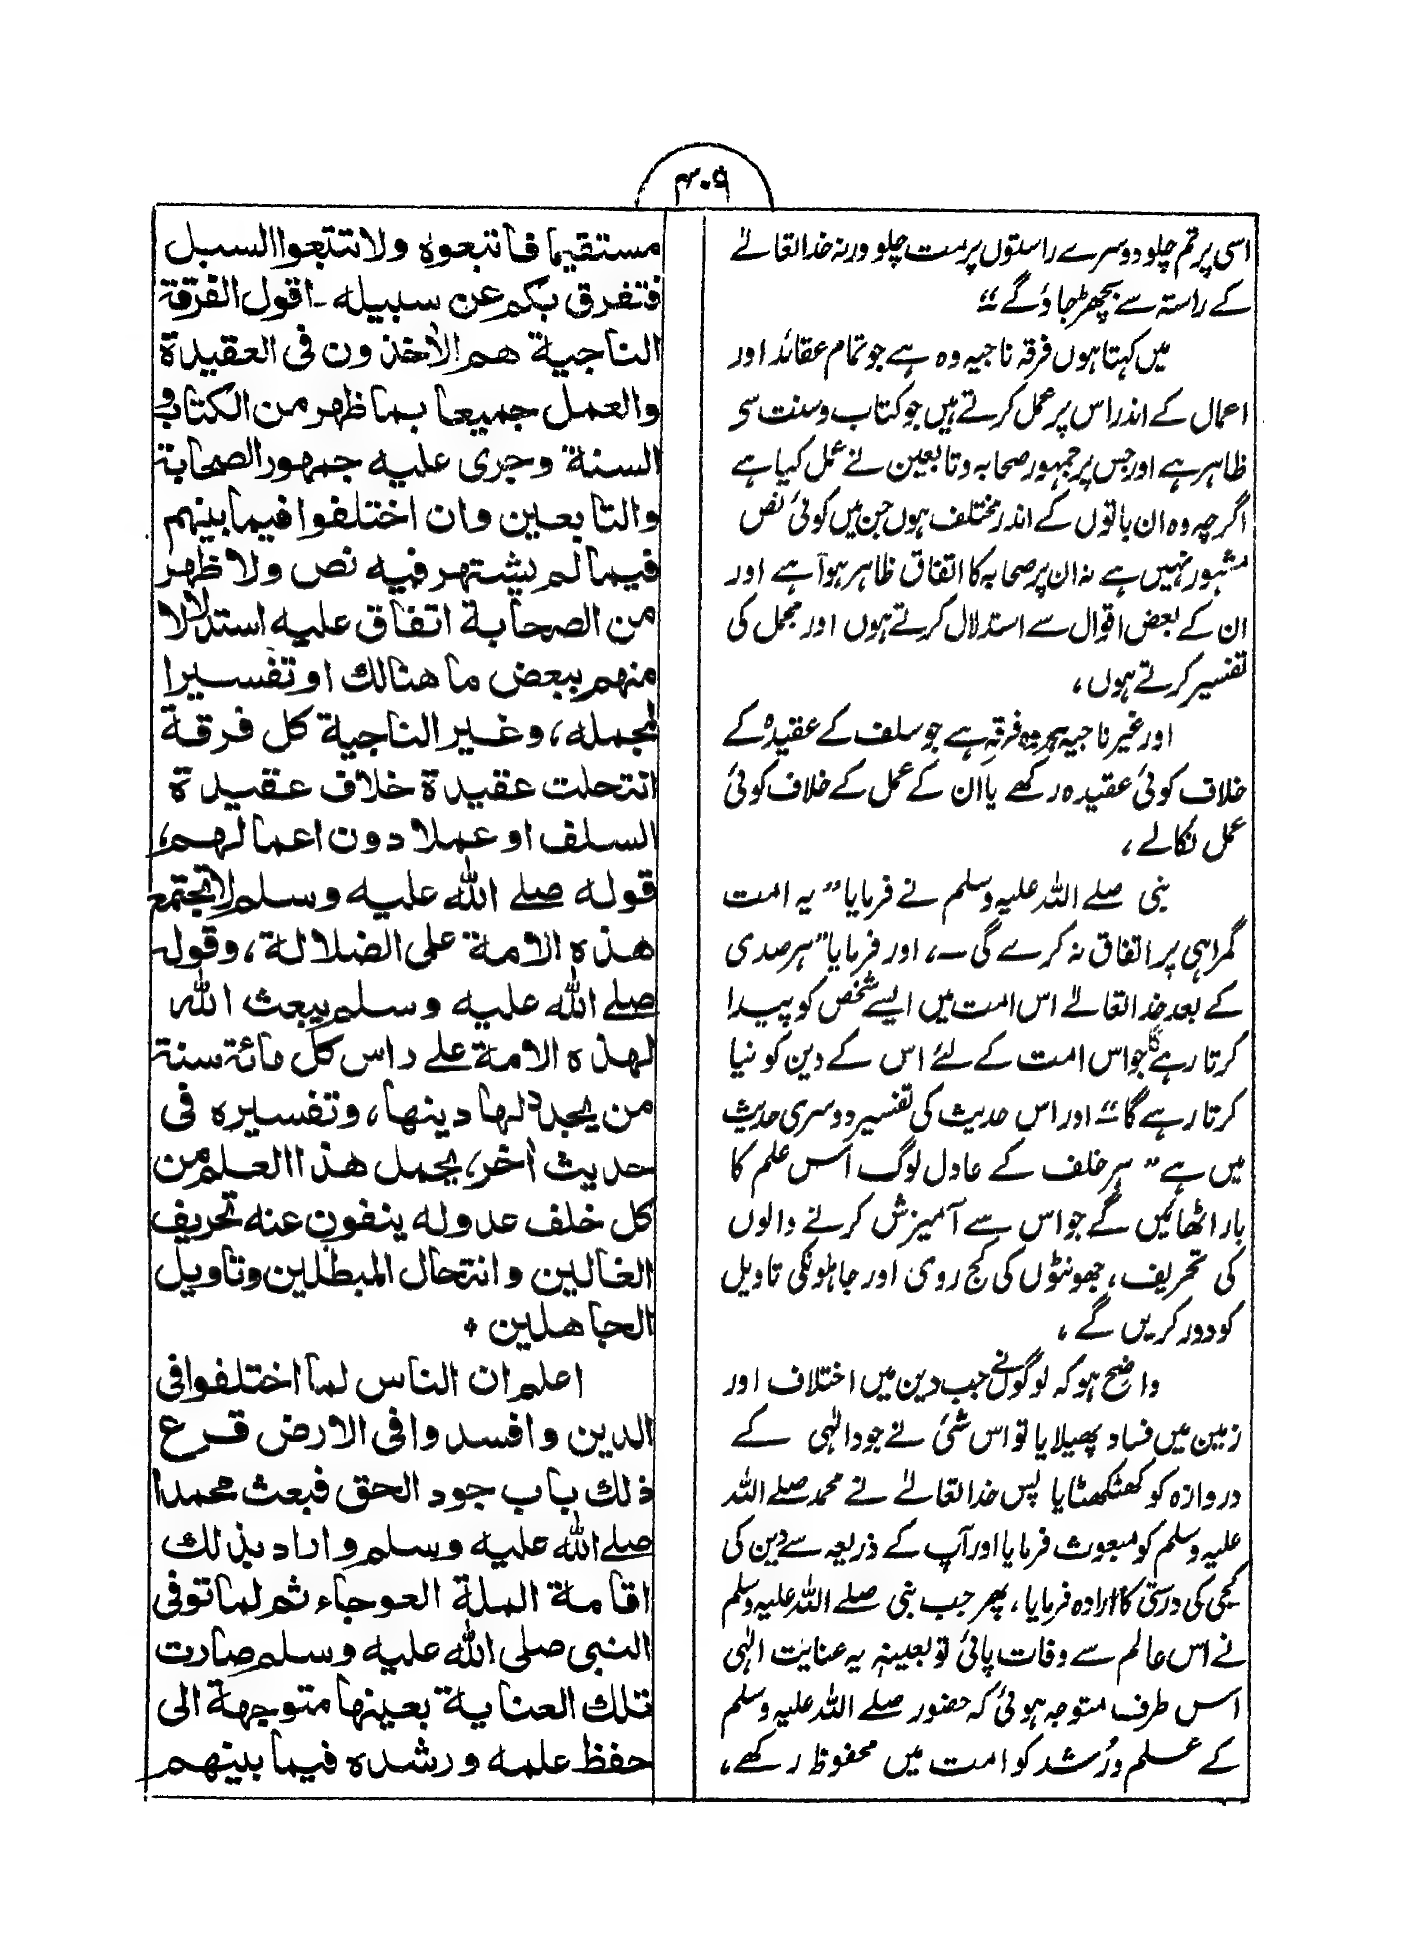 ۴۰۹
اسی پر تم چلو دوسرے راستوں پر مت چلو ورنہ خدا تعالےٰ
کے راستہ سے بچھڑ جاؤ گے “
میں کہتا ہوں فرقہ ناجیہ وہ ہے جو تمام عقائد اور
اعمال کے اندر اس پر عمل کرتے ہیں جو کتاب و سنت سے
ظاہر ہے اور جس پر جمہور صحابہ و تابعین نے عمل کیا ہے
اگرچہ وہ ان باتوں کے اندر مختلف ہوں جن میں کوئی نص
مشہور نہیں ہے نہ ان پر صحابہ کا اتفاق ظاہر ہوا ہے اور
ان کے بعض اقوال سے استدلال کرتے ہوں اور مجمل کی
تفسیر کرتے ہوں ،
اور غیر ناجیہ ہر وہ فرقہ ہے جو سلف کے عقیدہ کے
خلاف کوئی عقیدہ رکھے یا ان کے عمل کے خلاف کوئی
عمل نکالے ،
نبی صلے اللہ علیہ وسلم نے فرمایا ” یہ امت
گمراہی پر اتفاق نہ کرے گی ۔، اور فرمایا ” ہر صدی
کے بعد خدا تعالےٰ اس امت میں ایسے شخص کو پیدا
کرتا رہے گا جو اس امت کے لئے اس کے دین کو نیا
کرتا رہے گا “ اور اس حدیث کی تفسیر دوسری حدیث
میں ہے ” ہر خلف کے عادل لوگ اس علم کا
بار اٹھائیں گے جو اس سے آمیزش کرنے والوں
کی تحریف ، جھونٹوں کی کج روی اور جاہلونکی تاویل
کو دور کریں گے ،
واضح ہو کہ لوگوں نے جب دین میں اختلاف اور
زمین میں فساد پھیلایا تو اس شئی نے جود الٰہی کے
دروازہ کو کھٹکھٹایا پس خدا تعالےٰ نے محمد صلے اللہ
علیہ وسلم کو مبعوث فرمایا اور آپ کے ذریعہ سے دین کی
کجی کی درستی کا ارادہ فرمایا ، پھر جب نبی صلے اللہ علیہ وسلم
نے اس عالم سے وفات پائی تو بعینہٖ یہ عنایت الٰہی
اس طرف متوجہ ہوئی کہ حضور صلے اللہ علیہ وسلم
کے علم و رُشد کو امت میں محفوظ رکھے ،
مستقيما فاتبعوه ولا تتبعوا السبل
فتفرق بكم عن سبيله ـ اقول الفرقة
الناجية هم الآخذون فى العقيدة
والعمل جميعا بما ظهر من الكتاب و
السنة وجرى عليه جمهور الصحابة
والتابعين وان اختلفوا فيما بينهم
فيما لم يشتهر فيه نص ولا ظهر
من الصحابة اتفاق عليه استدلالا
منهم ببعض ما هنالك او تفسيرا
لمجمله، وغير الناجية كل فرقة
انتحلت عقيدة خلاف عقيدة
السلف او عملا دون اعمالهم،
قوله صلے الله عليه وسلم لا تجتمع
هذه الامة على الضلالة، وقوله
صلے الله عليه وسلم يبعث الله
لهذه الامة علے راس كل مائة سنة
من يجدد لها دينها، وتفسيره فى
حديث آخر، يحمل هذا العلم من
كل خلف عدوله ينفون عنه تحريف
الغالين وانتحال المبطلين وتاويل
الجاهلين ٭
اعلم ان الناس لما اختلفوا فى
الدين وافسدوا فى الارض قرع
ذلك باب جود الحق فبعث محمدا
صلے الله عليه وسلم واراد بذلك
اقامة الملة العوجاء ثم لما توفى
النبى صلى الله عليه وسلم صارت
تلك العناية بعينها متوجهة الى
حفظ علمه ورشده فيما بينهم